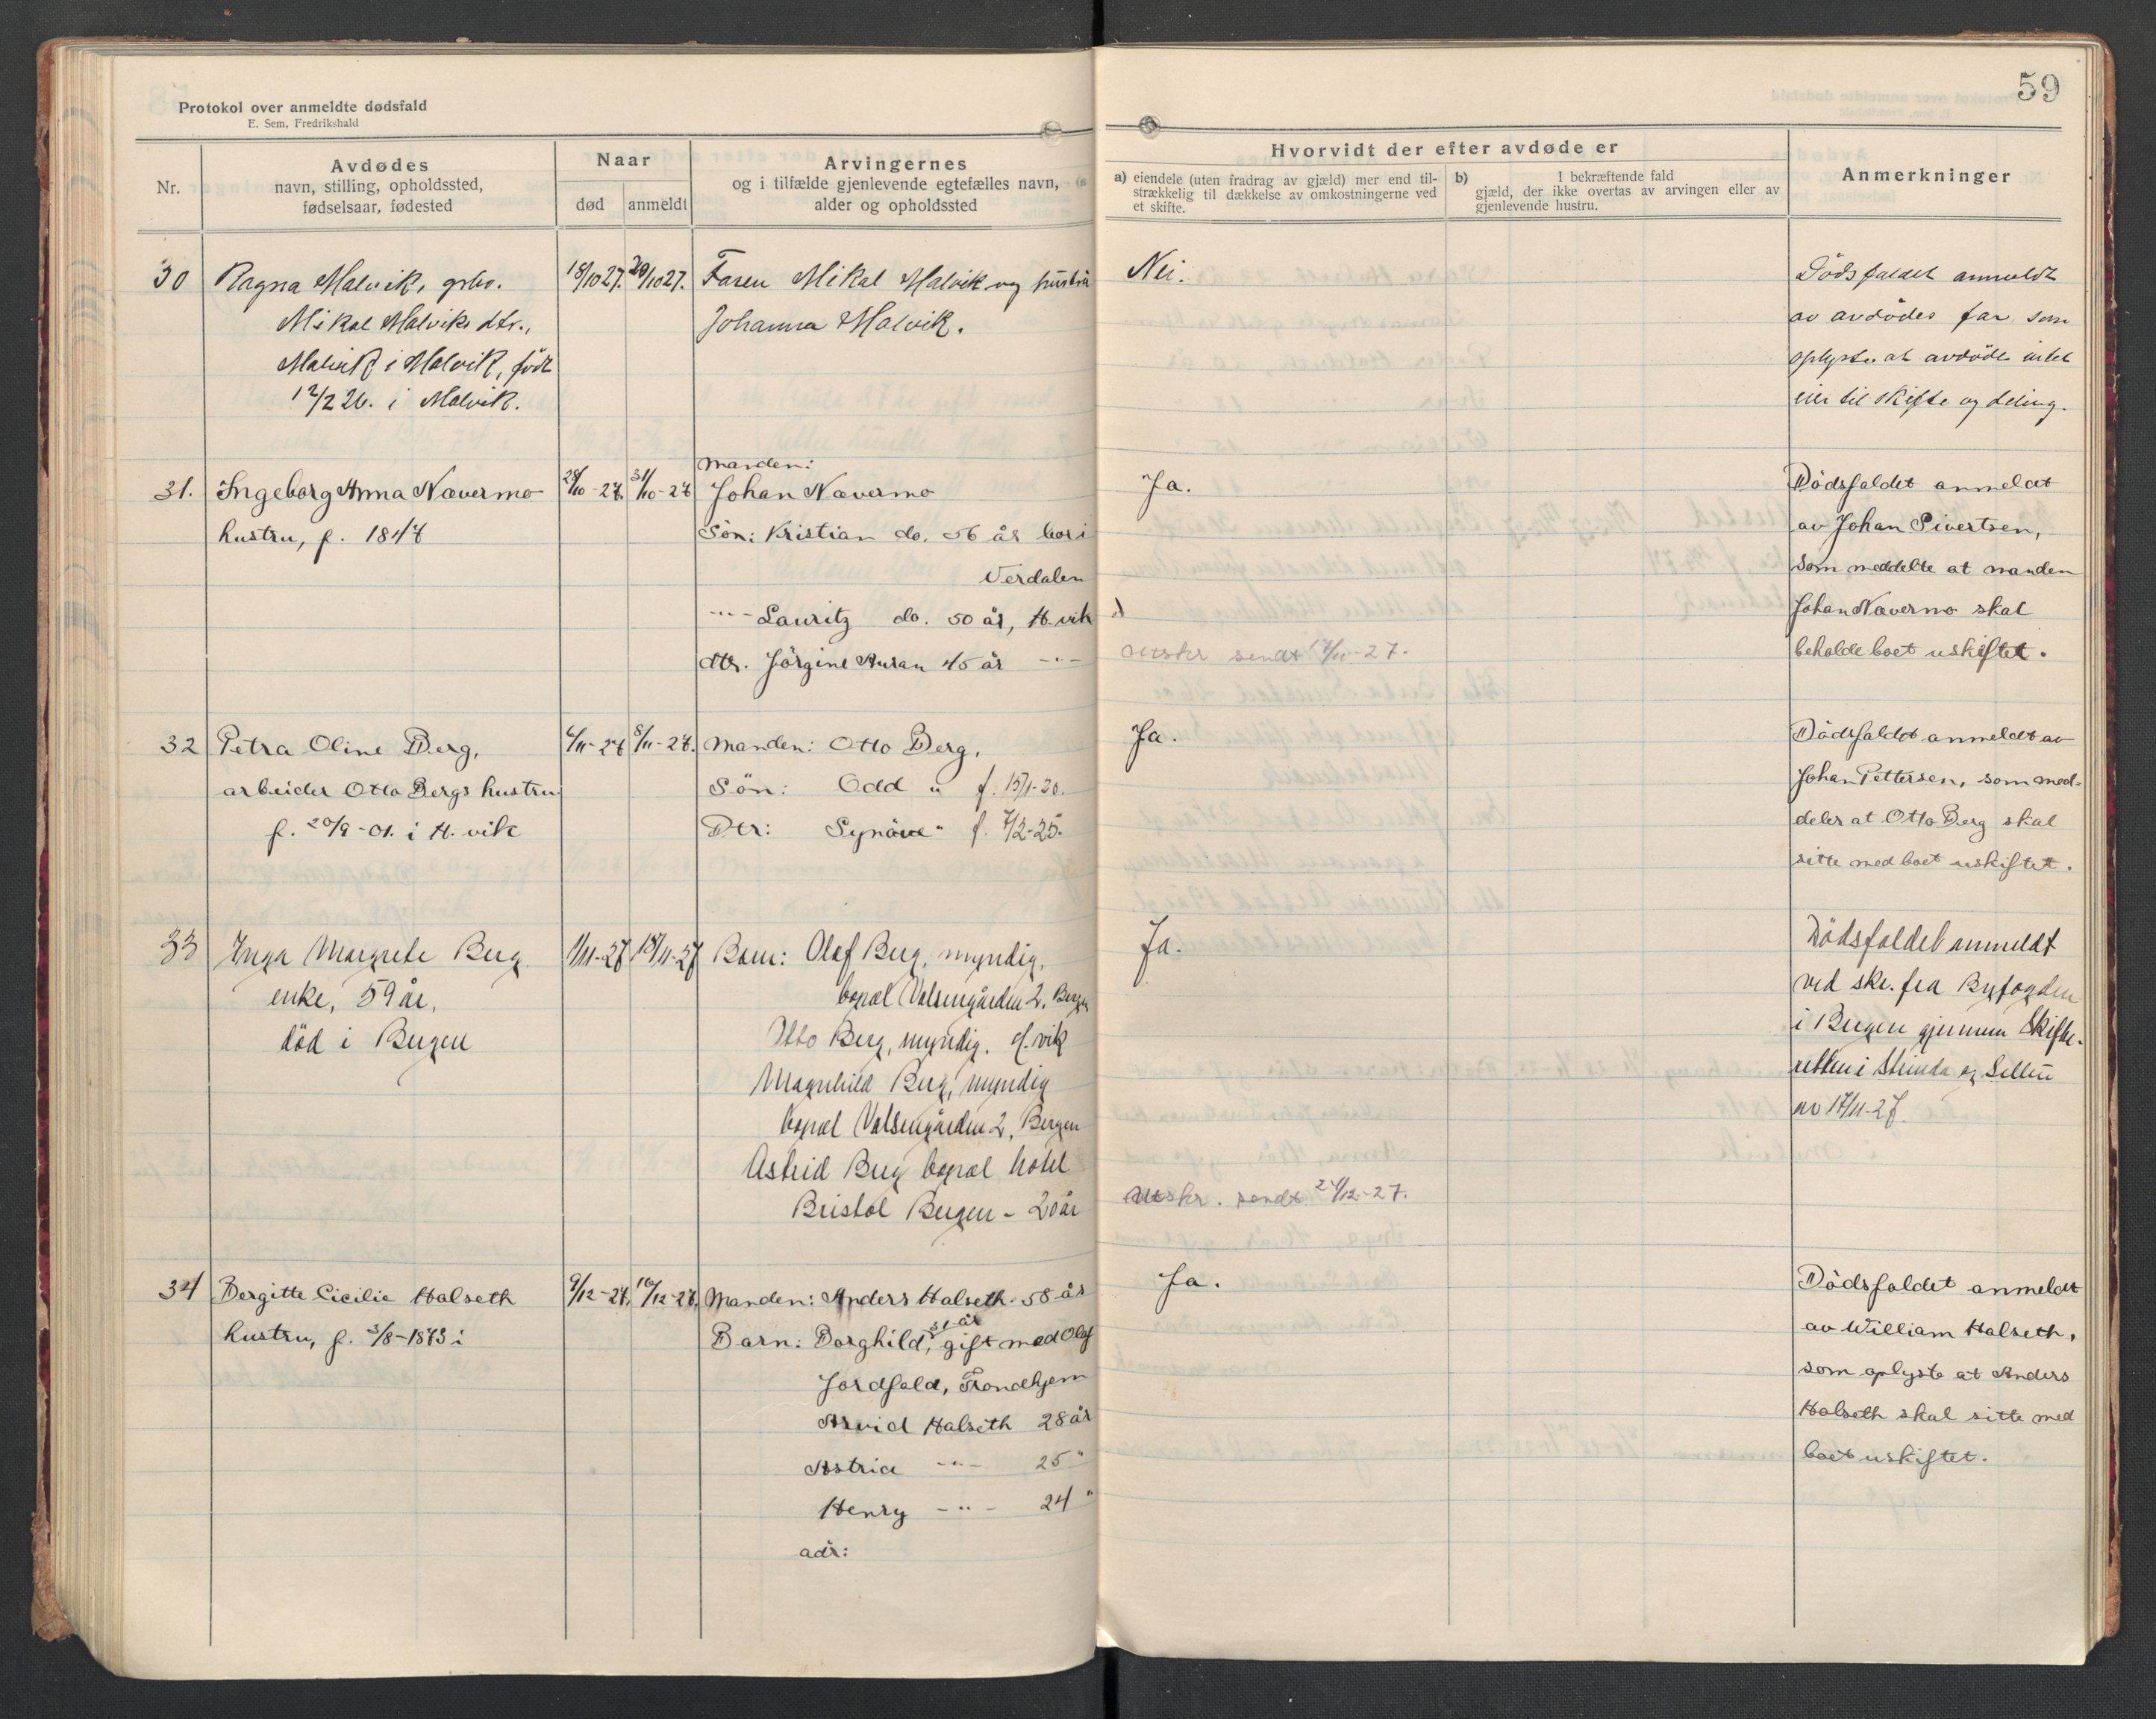 Protokol over anmeldte dødsfald
E. Sem, Fredrikshald
59
Nr.
Avdødes
navn, stilling, opholdssted,
fødselsaar, fødested
Naar
død
anmeldt
Arvingernes
og i tilfælde gjenlevende egtefælles navn,
alder og opholdssted
Hvorvidt der efter avdøde er
a) eiendele (uten fradrag av gjæld) mer end til-
strækkelig til dækkelse av omkostningerne ved
et skifte.
b) I bekræftende fald
gjæld, der ikke overtas av arvingen eller av
gjenlevende hustru.
Anmerkninger
30
Ragna Malvik, grbr.
Mikal Malviks dtr.,
Malvik i Malvik, født
12/2 26. i Malvik.
18/10 27.
29/10 27.
Faren Mikal Malvik og hustru
Johanna Malvik.
Nei.
Dödsfaldet anmeldt
av avdödes far som
oplyste at avdöde intet
eier til skifte og deling.
31.
Ingeborg Anna Nævermo
hustru, f. 1847
28/10-27.
31/10-27
Manden:
Johan Nævermo
Sön: Kristian do. 56 år bor i
Verdalen
-"- Lauritz do. 50 år, H.vik
dtr. Jörgine Auran 45 år -"-
Ja.
Utskr sendt 17/11-27.
Dödsfaldet anmeldt
av Johan Sivertsen,
som meddelte at manden
Johan Nævermo skal
beholde boet uskiftet.
32
Petra Oline Berg,
arbeider Otto Bergs hustru
f. 20/9-01. i H.vik
6/11-27
8/11-27.
Manden: Otto Berg,
Sön: Odd " f. 15/1-20.
Dtr: Synöve " f. 7/2-25.
Ja.
Dödsfaldet anmeldt av
Johan Pettersen, som med-
deler at Otto Berg skal
sitte med boet uskiftet.
33
Inga Margrete Berg
enke, 59 år,
död i Bergen
1/11-27
18/11-27
Barn: Olaf Berg, myndig,
bopæl Valsengården 2, Bergen
Otto Berg, myndig. H.vik
Magnhild Berg, myndig
bopæl Valsengården 2, Bergen
Astrid Berg bopæl hotel
Bristol Bergen - 20 år
Ja.
Utskr. sendt 24/12-27.
Dödsfaldet anmeldt
ved skr. fra Byfogden
i Bergen gjennem Skifte-
retten i Strinda og Selbu
av 17/11-27.
34
Bergitte Cicilie Halseth
hustru, f. 3/8-1873 i
9/12-27.
16/12-27.
Manden: Anders Halseth. 58 år
31 år
Barn: Borghild, gift med Olaf
Jordfald, Trondhjem
Arvid Halseth 28 år
Astrid -"- 25 "
Henry -"- 24 "
adr:
Ja.
Dödsfaldet anmeldt
av William Halseth,
som oplyste at Anders
Halseth skal sitte med
boet uskiftet.